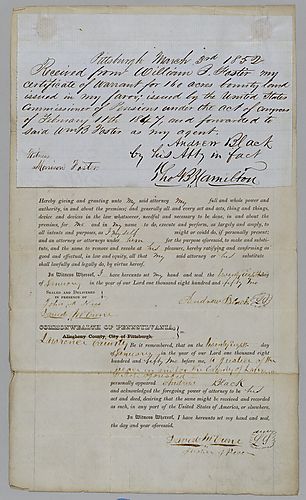 Pittsburgh March 2nd 1852
Received from William B. Foster my
certificate of Warrant for 160 acres bounty land
issued in my favor, issued by the United States
Commissioner of Pensions under the act of Congress
of February 11th 1847, and forwarded to
said Wm B Foster as my agent.
Andrew Black
Witness
by his Atty in fact
Morrison Foster
Thos B Hamilton
Hereby giving and granting unto my said attorney my full and whole power and
authority, in and about the premises; and generally all and every act and acts, thing and things,
device and devices in the law whatsoever, needful and necessary to be done, in and about the
premises, for me and in my name to do, execute and perform, as largely and amply, to
all intents and purposes, as I myself might or could do, if personally present;
and an attorney or attorneys under for the purpose aforesaid, to make and substi-
tute, and the same to remove and revoke at his pleasure, hereby ratifying and confirming as
good and effectual, in law and equity, all that my said attorney or his substitute
shall lawfully and legally do by virtue hereof.
In Witness Whereof, I have hereunto set my hand and seal, the twenty eighth day
of January in the year of our Lord one thousand eight hundred and fifty two
Sealed and Delivered
in presence of
Andrew Black
John
David
COMMONWEALTH OF PENNSYLVANIA,
Allegheny County, City of Pittsburgh.
Lawrence County
Be it remembered, that on the twenty eighth day
of January in the year of our Lord one thousand eight hundred
and fifty two before me, a Justice of the
peace in and for the County of Lawrence
aforesaid
personally appeared Andrew Black
and acknowledged the foregoing power of attorney to be his
act and deed, desiring that the same might be received and recorded
as such, in any part of the United States of America, or elsewhere.
In Witness Whereof, I have hereunto set my hand and seal,
the day and year aforesaid.
David
Justice of Peace